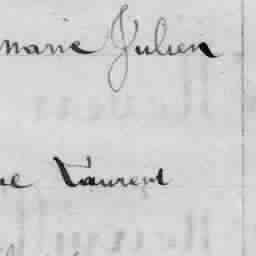 marie Julien
ue Laurent